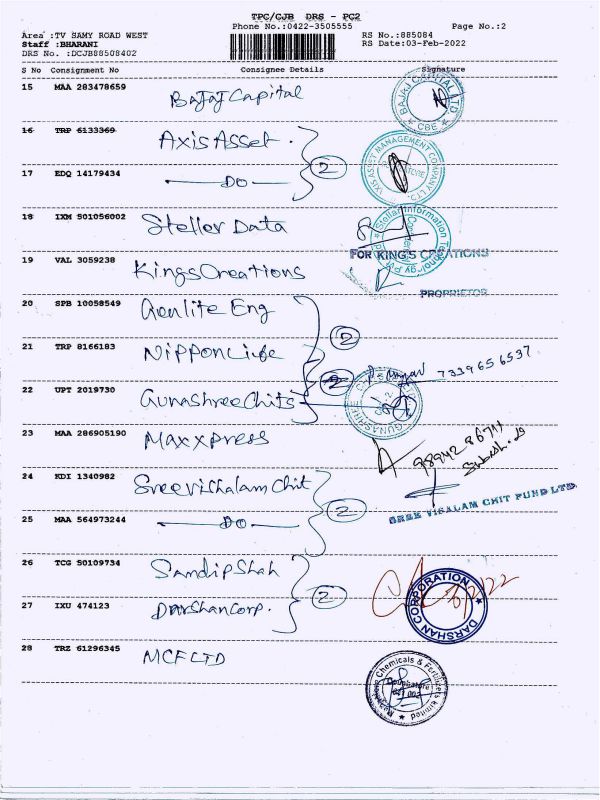 TPC/CJB DRS - PC2
Phone No.:0422-3505555
Page No.:2
Area :TV SAMY ROAD WEST
RS No.:885084
Staff :BHARANI
RS Date:03-Feb-2022
DRS No. :DCJB88508402
S No Consignment No Consignee Details Signature
15 MAA 283478659 Bajaj Capital
BAJAJ CAPITAL LTD
CBE
16 TRP 6133369 Axis Asset.
2
17 EDQ 14179434 DO
AXIS ASSET MANAGEMENT COMPANY LTD.
18 IXM 501056002 Steller Data
Stellar Information Technology
FOR KING'S CREATIONS
19 VAL 3059238 Kings Creations
PROPRIETOR
20 SPB 10058549 Genlite Eng
2
21 TRP 8166183 Nippon Life
7339656537
22 UPT 2019730 Gunashree Chits
GUNASHREE
23 MAA 286905190 Maxxpress
9894286711
24 KDI 1340982 Sreevishalam Chit
2
SREE VISALAM CHIT FUND LTD
25 MAA 564973244 DO
26 TCG 50109734 Sandip Shah
2
27 IXU 474123 Darshan Corp.
DARSHAN CORPORATION
28 TRZ 61296345 MCFLTD
Chemicals & Fertilizers Limited
Coimbatore